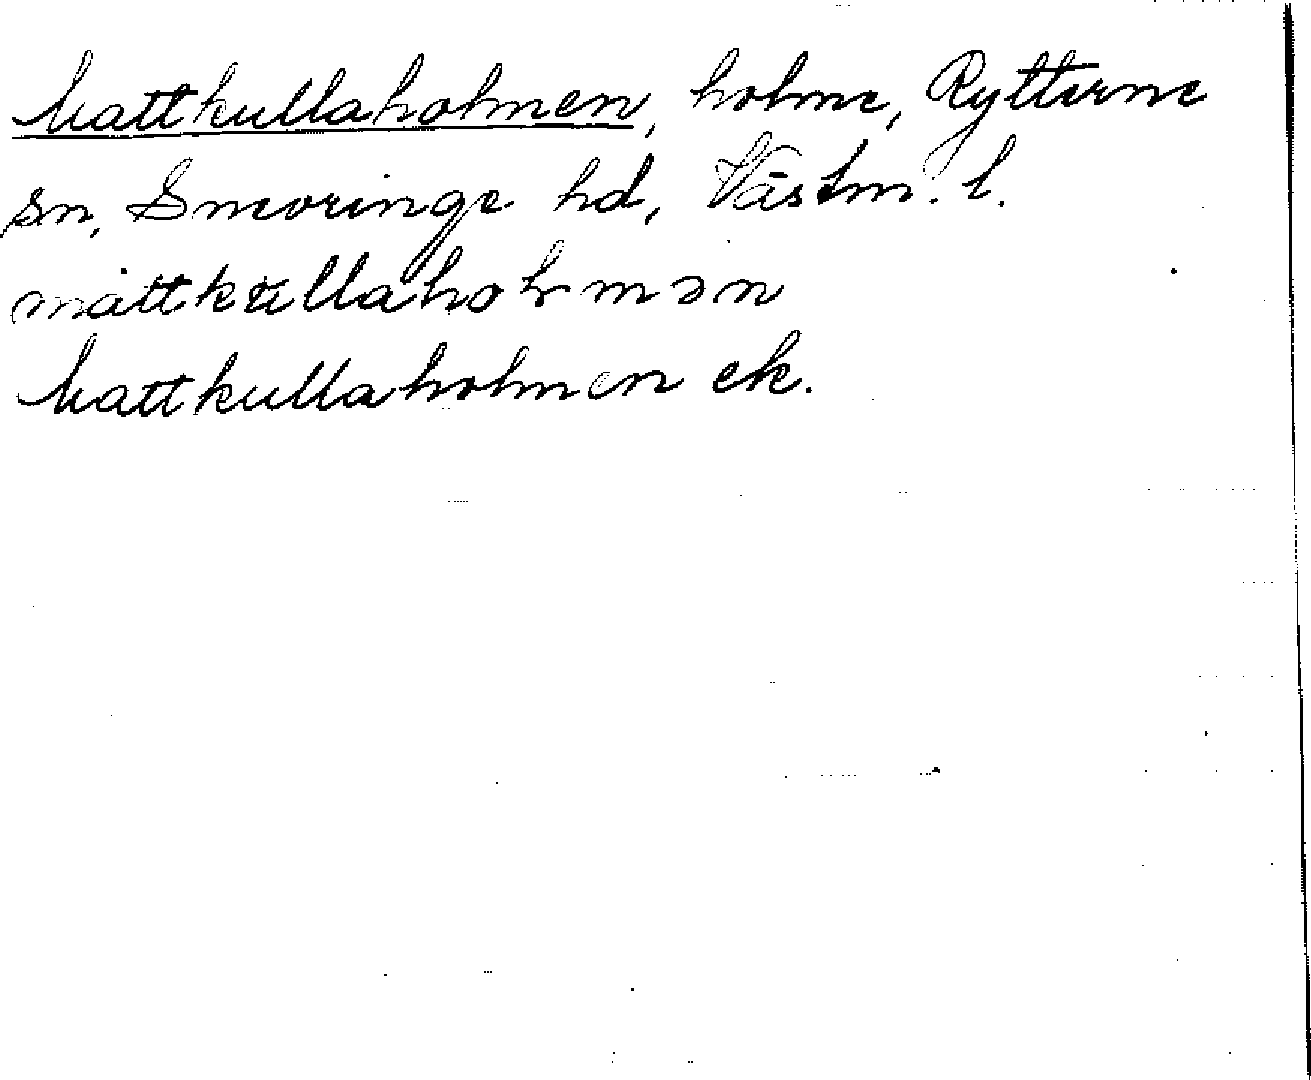 Mattkullaholmen, holme, Rytterne
sn, Snevringe hd, Västm. l.
mattkullahol mən
Mattkullaholmen ek.